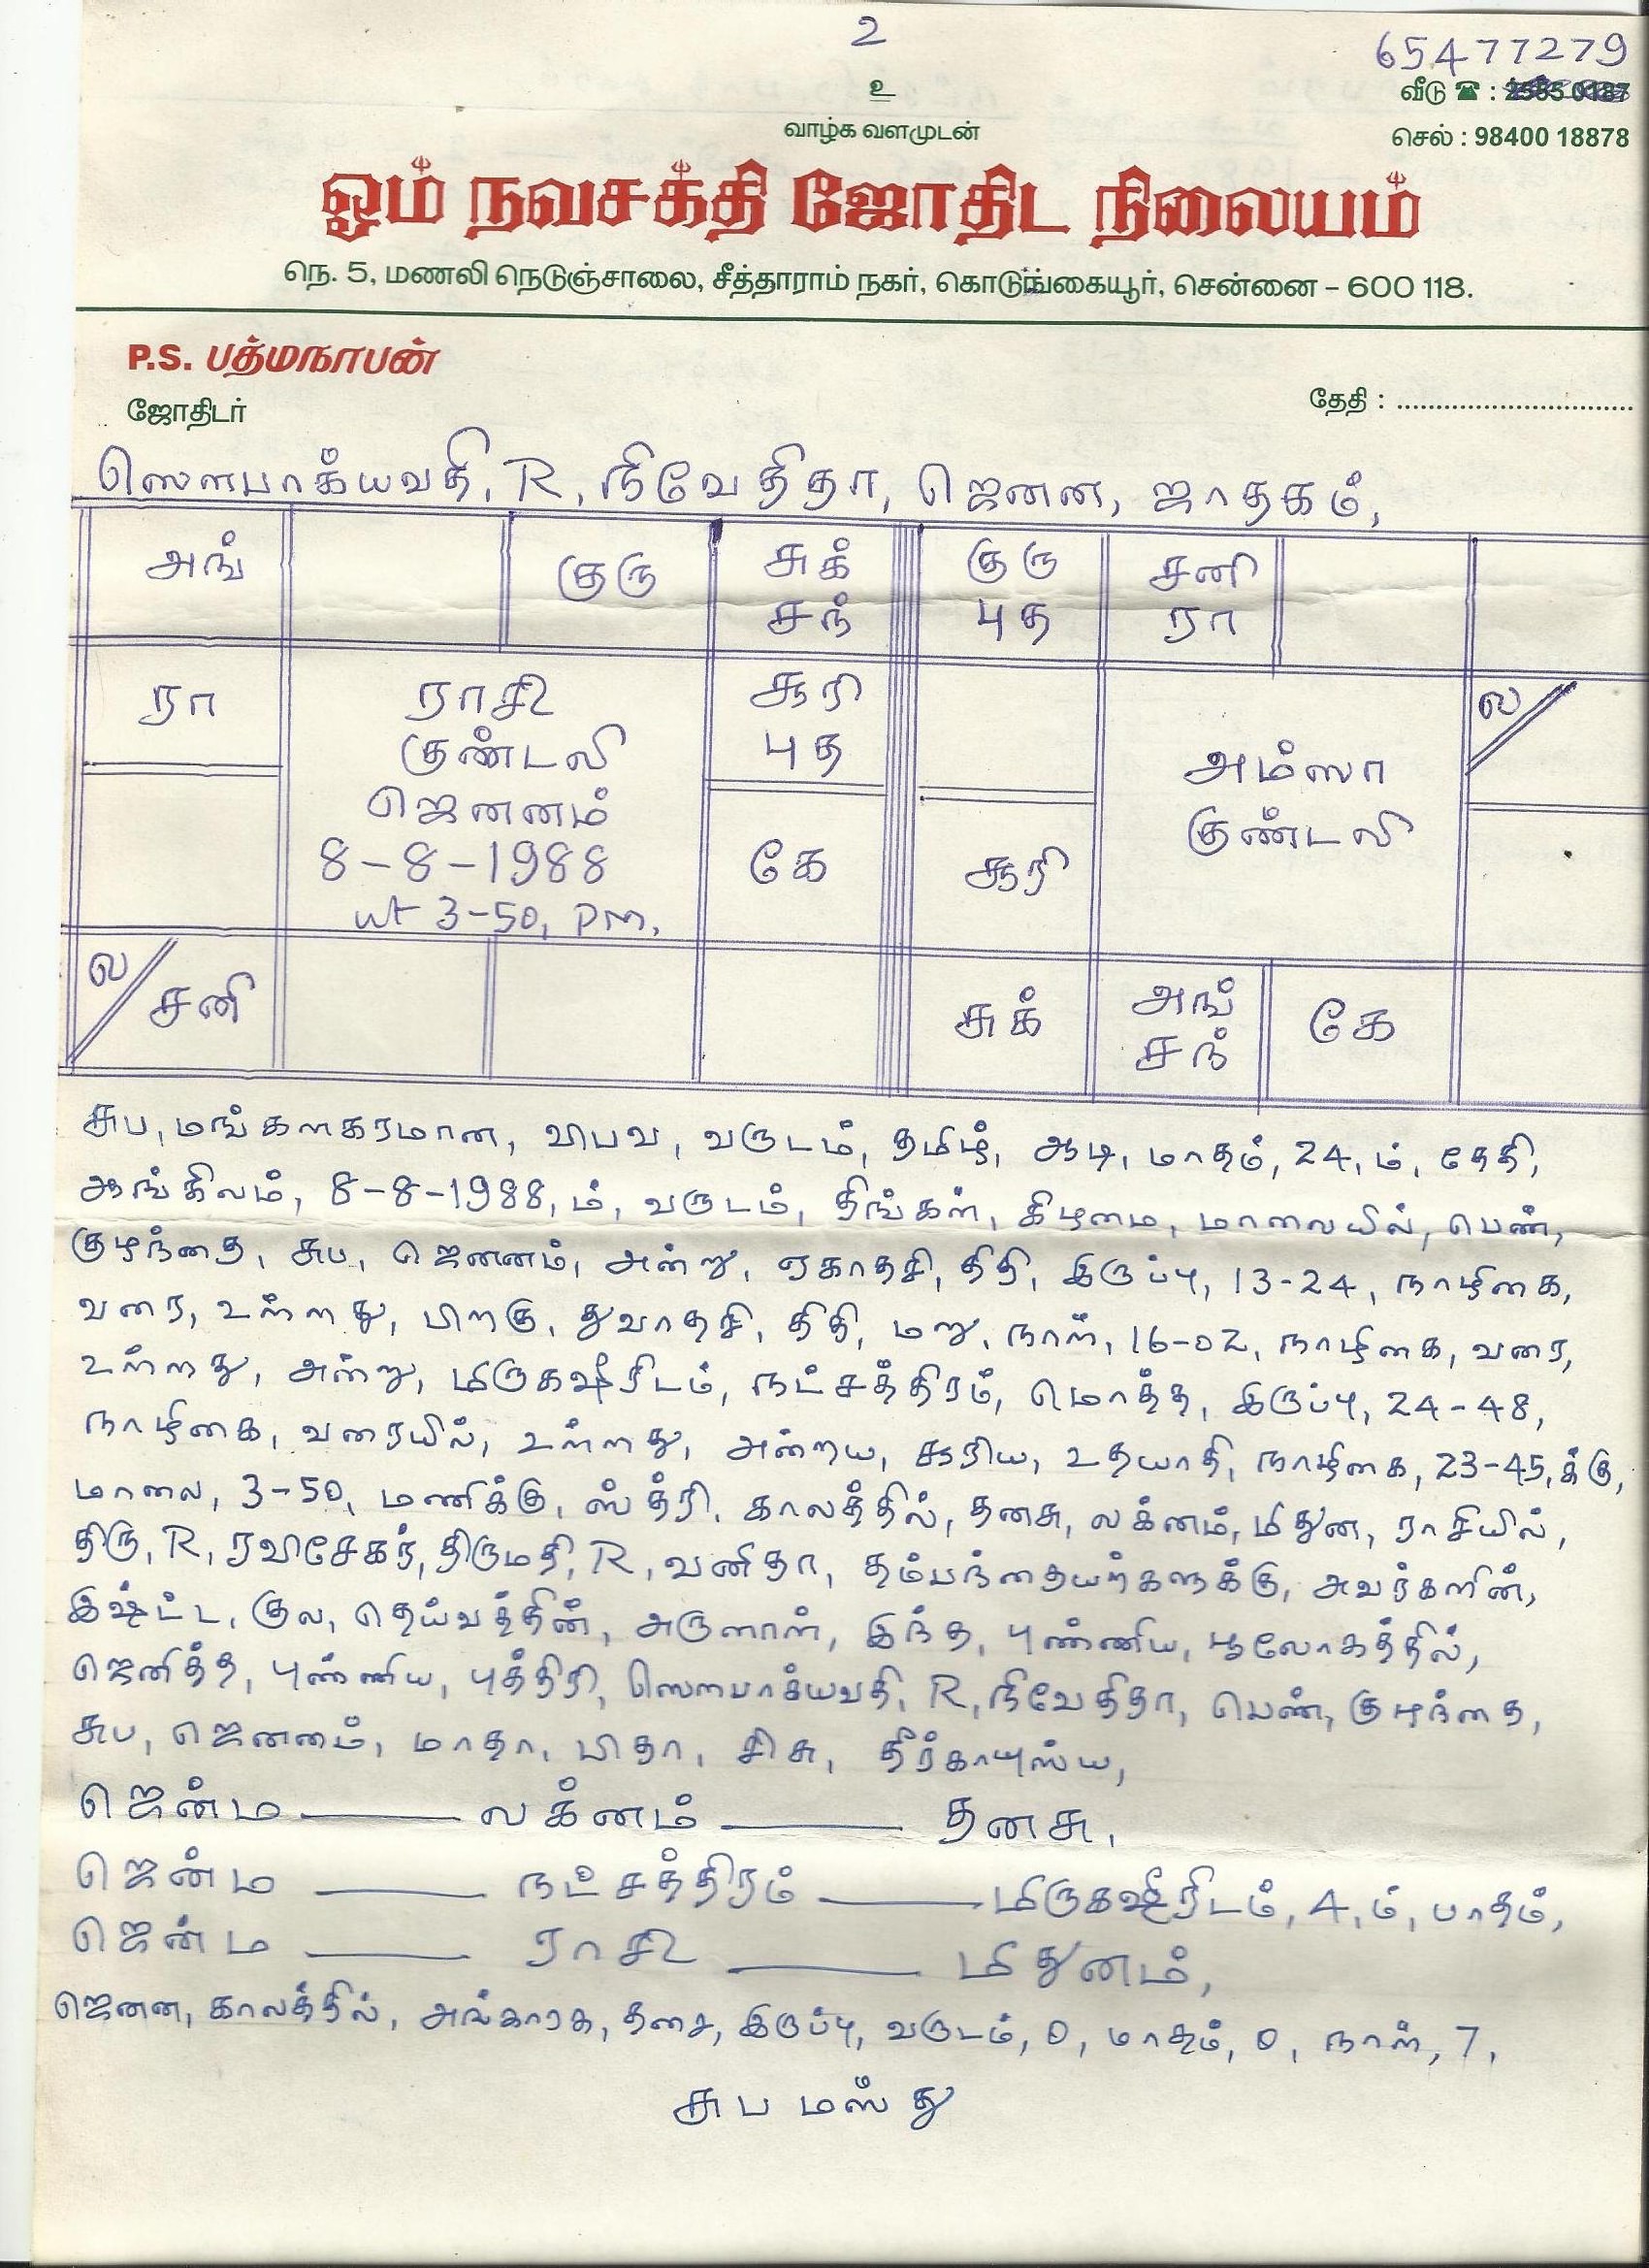 2
65477279
உ
வீடு ☎ : 2585 0187
வாழ்க வளமுடன்
செல் : 98400 18878
ஓம் நவசக்தி ஜோதிட நிலையம்
நெ. 5, மணலி நெடுஞ்சாலை, சீத்தாராம் நகர், கொடுங்கையூர், சென்னை – 600 118.
P.S. பத்மநாபன்
ஜோதிடர்
தேதி : ..............................
ஸௌபாக்யவதி, R, நிவேதிதா, ஜெனன, ஜாதகம்,
அங் குரு சுக் குரு சனி
சந் புத ரா
ரா ராசி சூரி ல
குண்டலி புத அம்ஸா
ஜெனனம் குண்டலி
8-8-1988 கே சூரி
3-50, pm,
ல சனி சுக் அங் கே
சந்
சுப, மங்களகரமான, விபவ, வருடம், தமிழ், ஆடி, மாதம், 24, ம், தேதி,
ஆங்கிலம், 8-8-1988, ம், வருடம், திங்கள், கிழமை, மாலையில், பெண்,
குழந்தை, சுப, ஜெனனம், அன்று, ஏகாதசி, திதி, இருப்பு, 13-24, நாழிகை,
வரை, உள்ளது, பிறகு, துவாதசி, திதி, மறு, நாள், 16-02, நாழிகை, வரை,
உள்ளது, அன்று, மிருகஷீரிடம், நட்சத்திரம், மொத்த, இருப்பு, 24-48,
நாழிகை, வரையில், உள்ளது, அன்றைய, சூரிய, உதயாதி, நாழிகை, 23-45, க்கு,
மாலை, 3-50, மணிக்கு, ஸ்த்ரி, காலத்தில், தனசு, லக்னம், மிதுன, ராசியில்,
திரு, R, ரவிசேகர், திருமதி, R, வனிதா, தம்பந்தையர்களுக்கு, அவர்களின்,
இஷ்ட்ட, குல, தெய்வத்தின், அருளால், இந்த, புண்ணிய, பூலோகத்தில்,
ஜெனித்த, புண்ணிய, புத்திரி, ஸௌபாக்யவதி, R, நிவேதிதா, பெண், குழந்தை,
சுப, ஜெனனம், மாதா, பிதா, சிசு, தீர்காயுஸ்ய,
ஜென்ம — லக்னம் — தனசு,
ஜென்ம — நட்சத்திரம் — மிருகஷீரிடம், 4, ம், பாதம்,
ஜென்ம — ராசி — மிதுனம்,
ஜெனன, காலத்தில், அங்காரக, திசை, இருப்பு, வருடம், 0, மாதம், 0, நாள், 7,
சுபமஸ்து